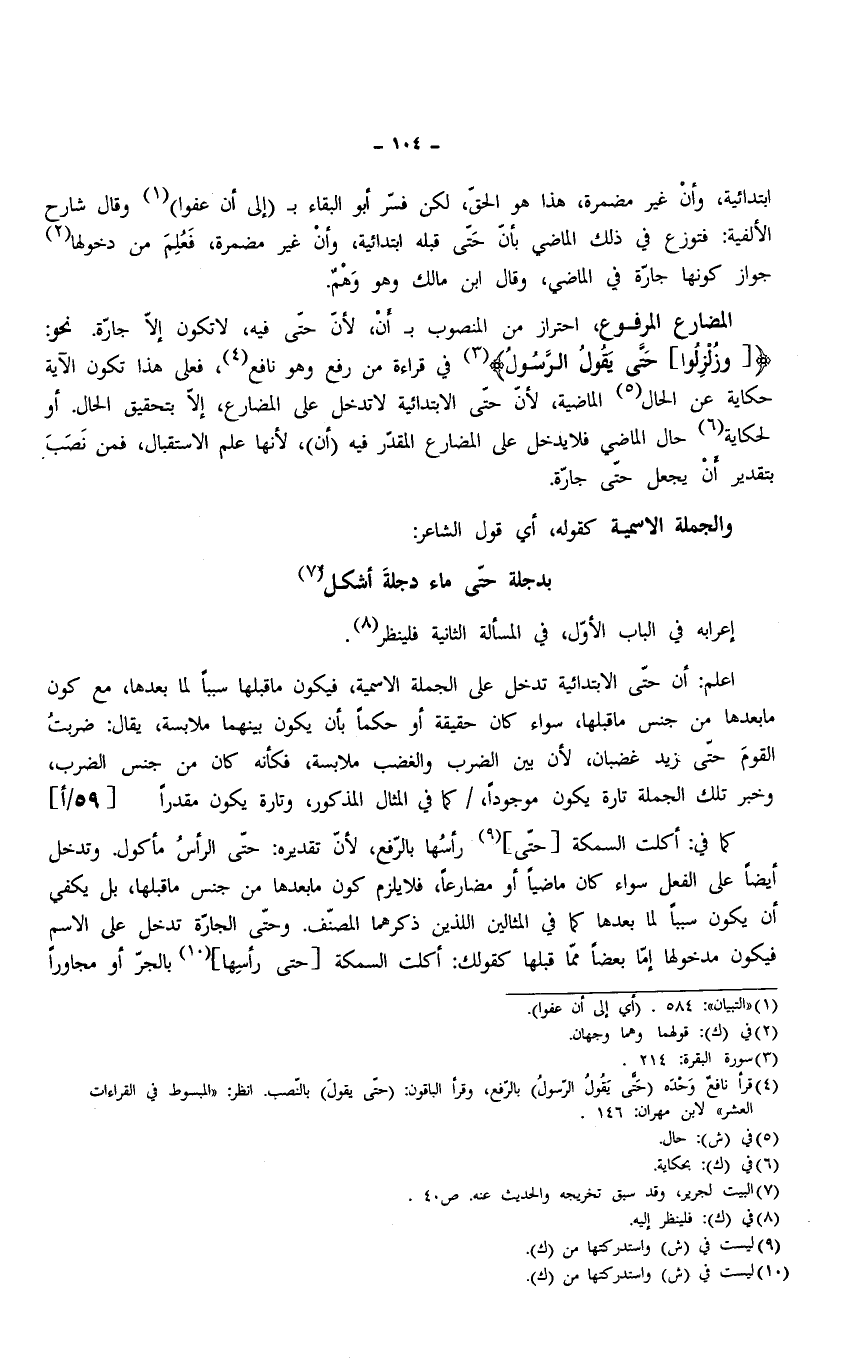 - ١٠٤ -
ابتدائية، وأنْ غير مضمرة، هذا هو الحقّ، لكن فسّر أبو البقاء بـ (إلى أن عفوا)(١) وقال شارح
الألفية: فتوزع في ذلك الماضي بأنّ حَتّى قبله ابتدائية، وأنْ غير مضمرة، فَعُلِمَ من دخولها(٢)
جواز كونها جارّة في الماضي، وقال ابن مالك وهو وَهْمٌ.
المضارع المرفوع، احتراز من المنصوب بـ أَنْ، لأنّ حتّى فيه، لاتكون إلاّ جارّة. نحو:
﴿[ وزُلْزِلُوا] حَتَّى يَقُولُ الرَّسُولُ﴾(٣) في قراءة من رفع وهو نافع(٤)، فعلى هذا تكون الآية
حكاية عن الحال(٥) الماضية، لأنّ حتّى الابتدائية لاتدخل على المضارع، إلاّ بتحقيق الحال. أو
لحكاية(٦) حال الماضي فلايدخل على المضارع المقدّر فيه (أن)، لأنها علم الاستقبال، فمن نَصَبَ
بتقدير أَنْ يجعل حتّى جارّة.
والجملة الاسمية كقوله، أي قول الشاعر:
بدجلة حتّى ماء دجلةَ أشكل(٧)
إعرابه في الباب الأوّل، في المسألة الثانية فلينظر(٨).
اعلم: أن حتّى الابتدائية تدخل على الجملة الاسمية، فيكون ماقبلها سبباً لما بعدها، مع كون
مابعدها من جنس ماقبلها، سواء كان حقيقة أو حكماً بأن يكون بينهما ملابسة، يقال: ضربتُ
القومَ حتّى زيد غضبان، لأن بين الضرب والغضب ملابسة، فكأنه كان من جنس الضرب،
وخبر تلك الجملة تارة يكون موجوداً، / كما في المثال المذكور، وتارة يكون مقدراً [٥٩/أ]
كما في: أكلت السمكة [حتّى](٩) رأسُها بالرّفع، لأنّ تقديره: حتّى الرأسُ مأكول. وتدخل
أيضاً على الفعل سواء كان ماضياً أو مضارعاً، فلايلزم كون مابعدها من جنس ماقبلها، بل يكفي
أن يكون سبباً لما بعدها كما في المثالين اللذين ذكرهما المصنّف. وحتّى الجارّة تدخل على الاسم
فيكون مدخولها إمّا بعضاً ممّا قبلها كقولك: أكلت السمكة [حتى رأسِها](١٠) بالجرّ أو مجاوراً
(١) «التبيان»: ٥٨٤ . (أي إلى أن عفوا).
(٢) في (ك): قولهما وهما وجهان.
(٣) سورة البقرة: ٢١٤ .
(٤) قرأ نافعٌ وَحْدَه (حَتَّى يَقُولُ الرّسولُ) بالرّفع، وقرأ الباقون: (حتّى يقولَ) بالنّصب. انظر: «المبسوط في القراءات
العشر» لابن مهران: ١٤٦ .
(٥) في (ش): حال.
(٦) في (ك): بحكاية.
(٧) البيت لجرير، وقد سبق تخريجه والحديث عنه. ص٤٠ .
(٨) في (ك): فلينظر إليه.
(٩) ليست في (ش) واستدركتها من (ك).
(١٠) ليست في (ش) واستدركتها من (ك).